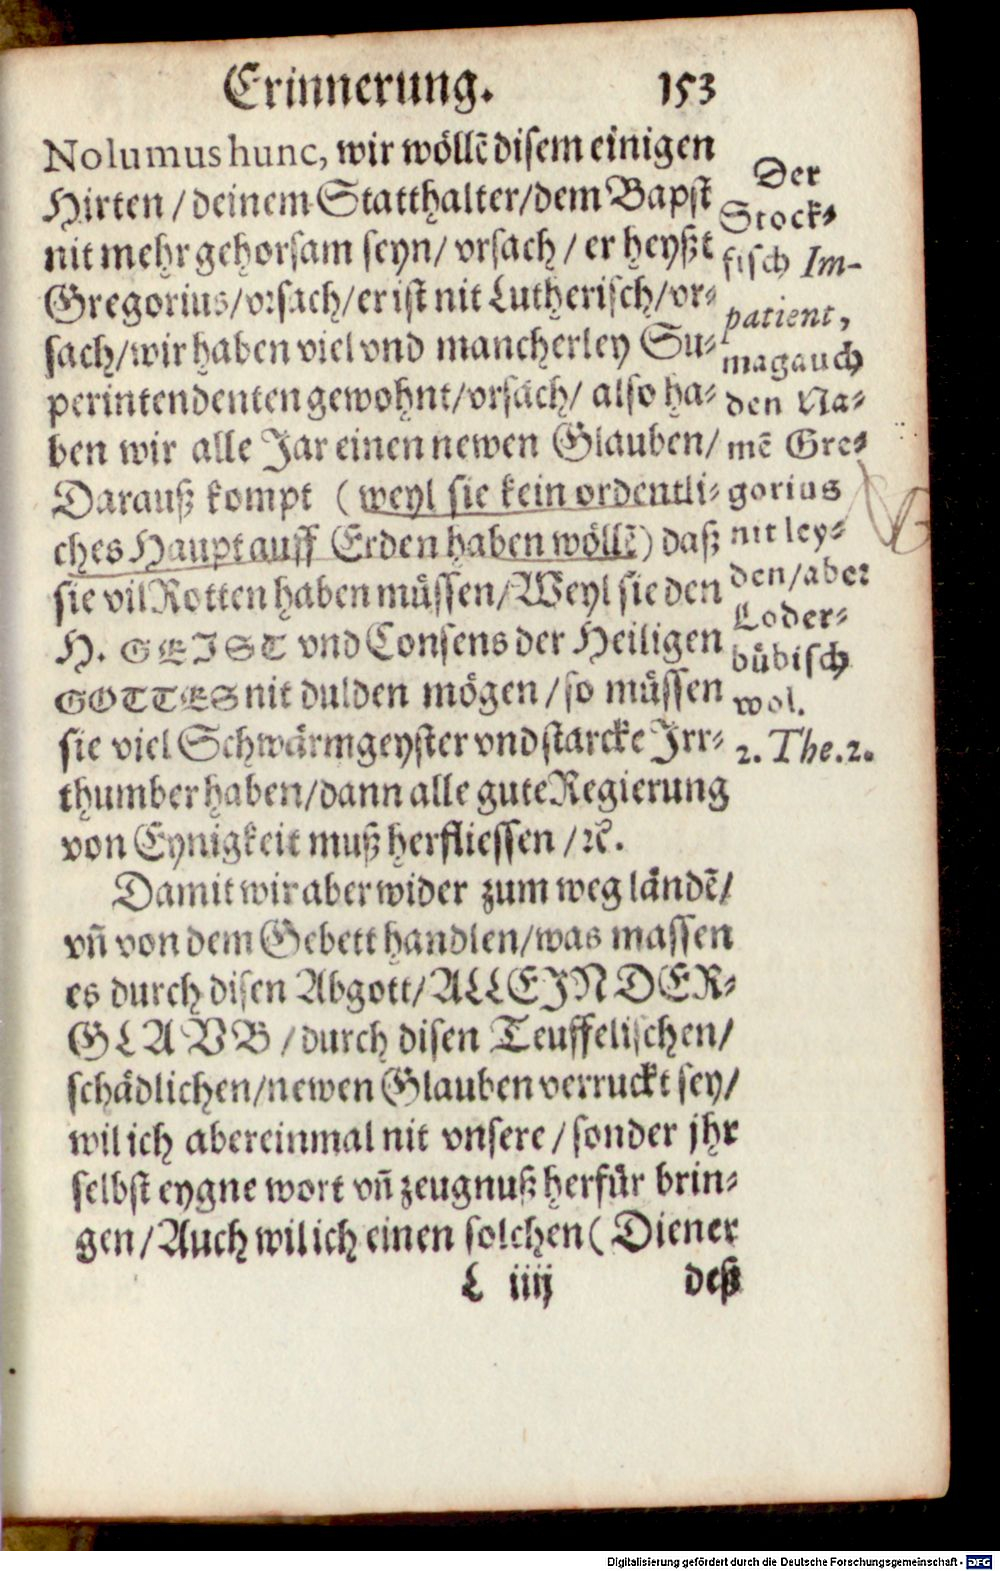 Erinnerung. 153
Nolumus hunc, wir wöllē disem einigen
Hirten / deinem Statthalter/dem Bapst
nit mehr gehorsam seyn/ vrsach / er heyßt
Gregorius/vrsach/er ist nit Lutherisch/vr⸗
sach/wir haben viel vnd mancherley Su⸗
perintendenten gewohnt/vrsach/ also ha⸗
ben wir alle Jar einen newen Glauben/
Darauß kompt (weyl sie kein ordentli⸗
ches Haupt auff Erden haben wöllē) daß
sie vil Rotten haben müssen/Weyl sie den
H. GEIST vnd Consens der Heiligen
GOTTES nit dulden mögen / so müssen
sie viel Schwärmgeyster vnd starcke Irr⸗
thumber haben/dann alle gute Regierung
von Eynigkeit muß herfliessen /ꝛc.
Damit wir aber wider zum weg ländē/
vñ von dem Gebett handlen/was massen
es durch disen Abgott/ALLEIN DER⸗
GLAVB / durch disen Teuffelischen/
schädlichen/newen Glauben verruckt sey/
wil ich aber einmal nit vnsere / sonder jhr
selbst eygne wort vñ zeugnuß herfür brin⸗
gen / Auch wil ich einen solchen ( Diener
L iiij deß
Der
Stock⸗
fisch Im-
patient,
mag auch
den Na⸗
mē Gre⸗
gorius
nit ley⸗
den/aber
Loder⸗
bübisch
wol.
2. The. 2.
Digitalisierung gefördert durch die Deutsche Forschungsgemeinschaft - DFG